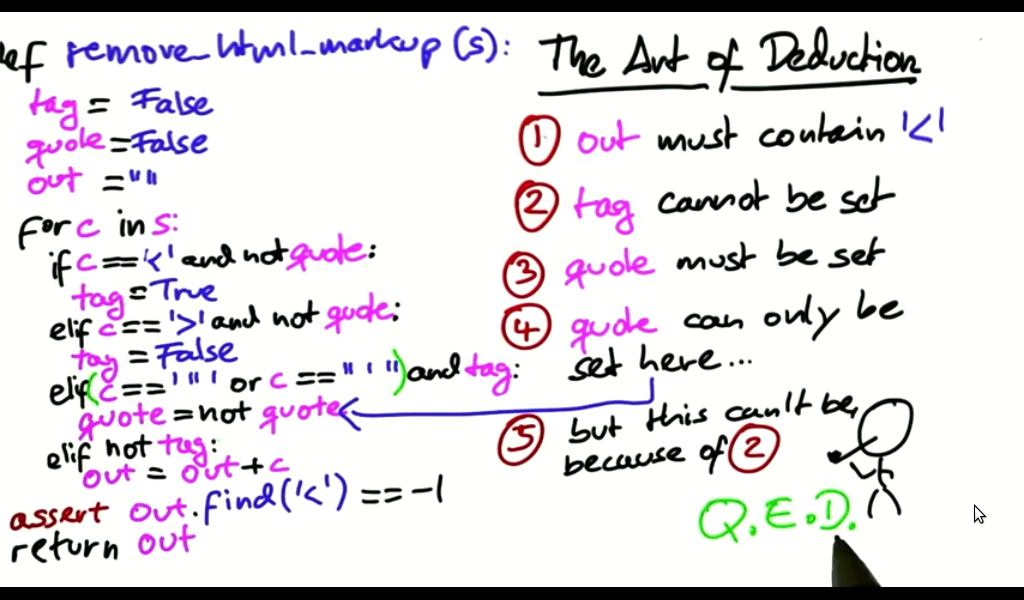 def remove_html_markup(s):
tag = False
quote = False
out = ""
for c in s:
if c == '<' and not quote:
tag = True
elif c == '>' and not quote:
tag = False
elif (c == '"' or c == "'") and tag:
quote = not quote
elif not tag:
out = out + c
assert out.find('<') == -1
return out
The Art of Deduction
1 out must contain '<'
2 tag cannot be set
3 quote must be set
4 quote can only be
set here...
5 but this can't be,
because of 2
Q.E.D.